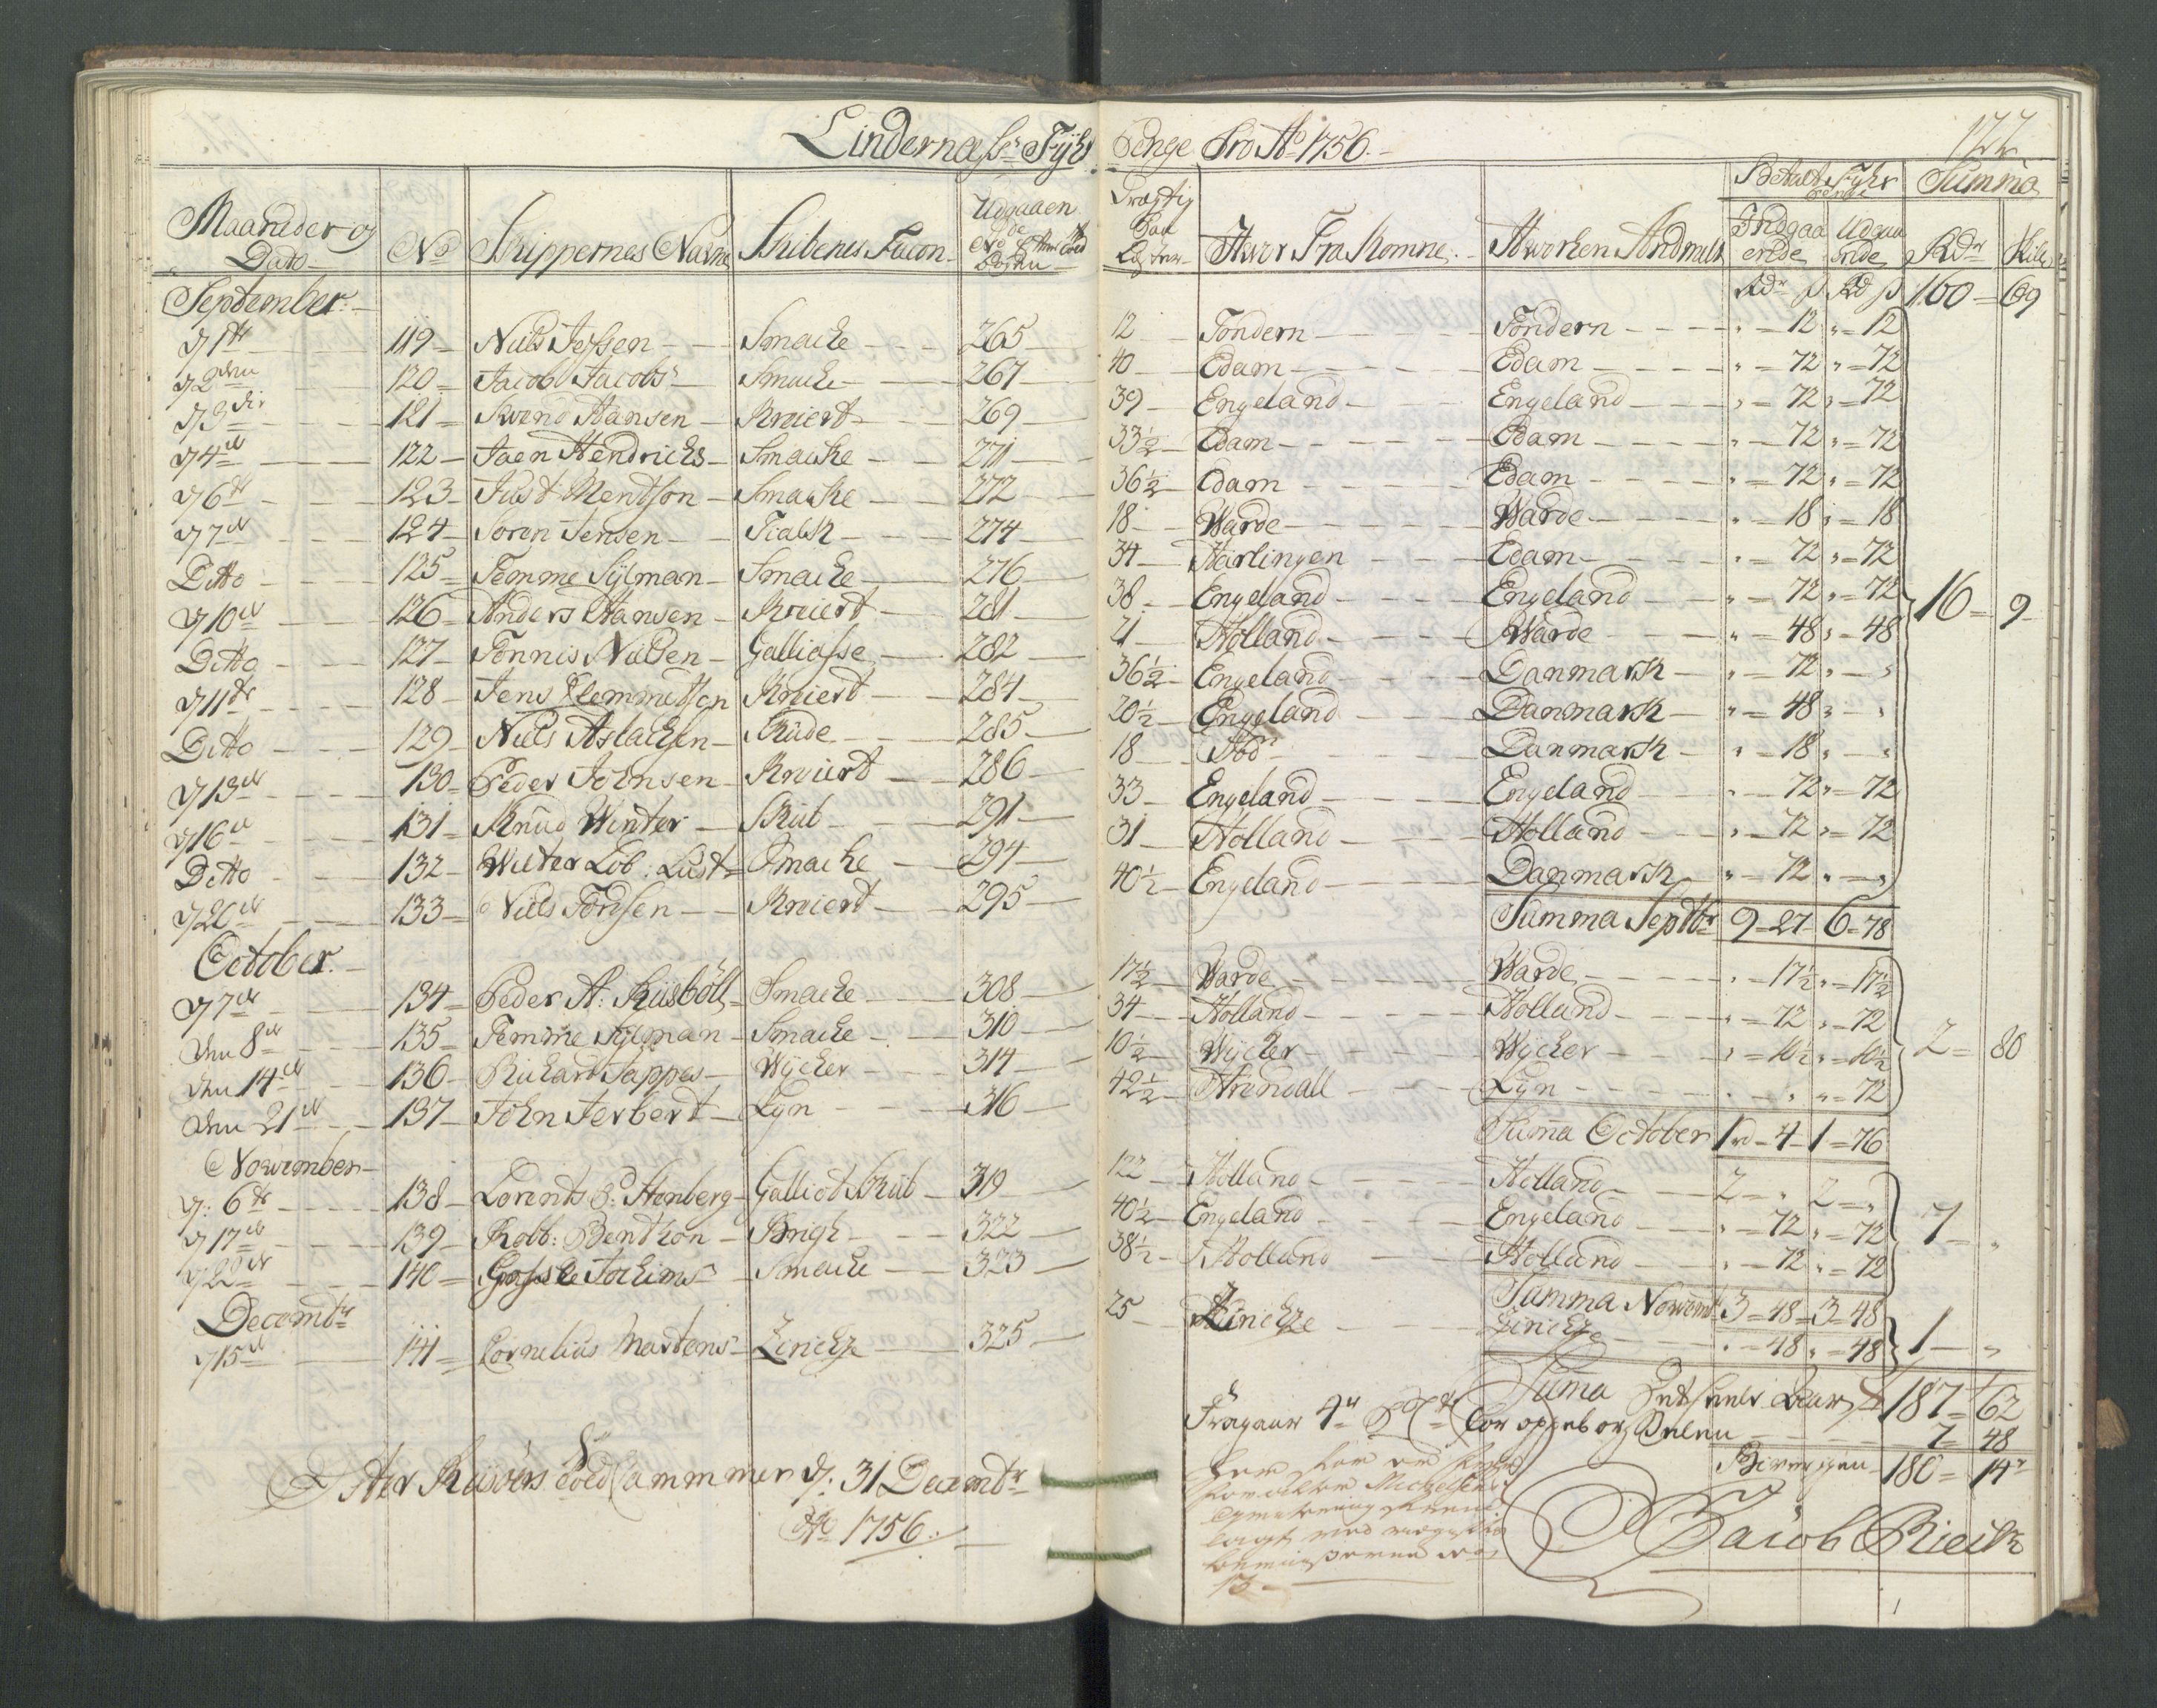 Lindernæss Fyhr Penge Pro Ao 1756.
122
Maaneder og Dato No Skippernes Navne Skibenes Facon Udgaaende No
Dræftig Læster Hvor Fra Komne. Hvorhen Andmelt Betalt Fyhr Penge Indgaaende Udgaaende Summa Rdr
September. Rdr ß Rd ß 160 = 69
d 1te 119 Niels Jessen Smacke 265 12 Tondern Tondern " = 12 " = 12
d 2den 120 Jacob Jacobs Smacke 267 40 Edam Edam " = 72 " = 72
d 3die 121 Svend Hansen Kreiert 269 39 Engeland Engeland " = 72 " = 72
d 4de 122 Jaen Hendrichs Smacke 271 33½ Edam Edam " = 72 " = 72
d 6te 123 Just Mentson Smacke 272 36½ Edam Edam " = 72 " = 72
d 7de 124 Soren Jensen Tialck 274 18 Warde Warde " = 18 " = 18
Ditto 125 Femme Sylman Smacke 276 34 Harlingen Edam " = 72 " = 72
d 10de 126 Anders Hansen Kreiert 281 38 Engeland Engeland " = 72 " = 72 16 = 9
Ditto 127 Tonnis Nielsen Galliasse 282 21 Holland Warde " = 48 " = 48
d 11te 128 Jens Clemmetsen Kreiert 284 36½ Engeland Danmark " = 72 " = "
Ditto 129 Niels Aslachsen Skude 285 20½ Engeland Danmark " = 48 " = "
d 13de 130 Peder Johnsen Kreiert 286 18 Danmark " = 18 " = "
d 16de 131 Knud Winter Skib 291 33 Engeland Engeland " = 72 " = 72
Ditto 132 Wieter Lob: Lust Smacke 294 31 Holland Holland " = 72 " = 72
d 20de 133 Niels Tonsen Kreiert 295 40½ Engeland Danmark " = 72 " = "
Summa Septbr 9 = 27 6 = 78
October.
d 7de 134 Peder A: Riisböll Smacke 308 17½ Warde Warde " = 17½ " = 17½
den 8de 135 Femme Sylman Smacke 310 34 Holland Holland " = 72 " = 72
den 14de 136 Richard Sappes Wycker 314 10½ Wycker Wycker " = 10½ " = 10½ 2 = 80
den 21de 137 John Jerbert Lyn 316 42½ Arendall Lyn " " " = 72
Summa October 1rd = 4 1 = 76
November
d: 6te 138 Lorents P: Stenberg Galliot Skib 319 122 Holland Holland 2 = " 2 = "
d 17de 139 Robb: Bentzon Brigh 322 40½ Engeland Engeland " = 72 " = 72 7 = "
d 22de 140 Gosse Jochims Smacke 323 38½ Holland Holland " = 72 " = 72
Summa Novembr 3 = 48 3 = 48
Decembr
d 15de 141 Cornelius Martens Zirickze 325 25 Zirickze Zirickze " = 48 " = 48 1 = "
Suma 187 = 62
Fragaar 4r 7 = 48
180 = 14
Coldcammmer d: 31 Decembr
Ao 1756.
Jacob Rieck